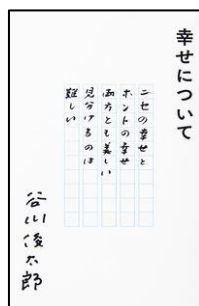 幸せについて
ニセの幸せと
ホントの幸せ
両方とも美しい
見分けるのは
難しい
谷川俊太郎